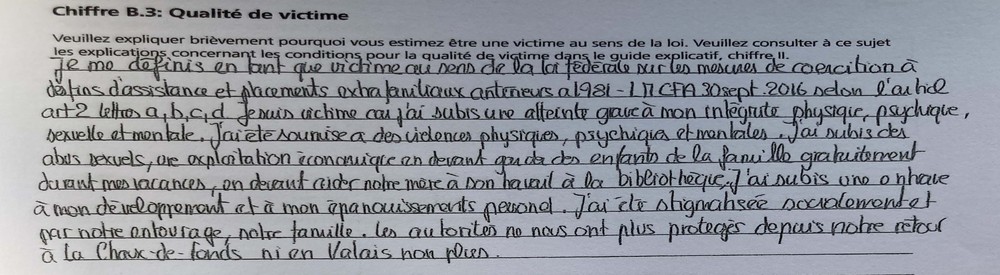 Chiffre B.3: Qualité de victime
Veuillez expliquer brièvement pourquoi vous estimez être une victime au sens de la loi. Veuillez consulter à ce sujet
les explications concernant les conditions pour la qualité de victime dans le guide explicatif, chiffre II.
Je me définis en tant que victime au sens de la loi fédérale sur les mesures de coercition à
des fins d'assistance et placements extrafamiliaux antérieurs a 1981 - LMCFA 30 sept. 2016 selon l'article
art 2 lettres a, b, c, d Je suis victime car j'ai subis une atteinte grave à mon intégrité physique, psychique,
sexuelle et mentale. J'ai été soumise a des violences physiques, psychiques et mentales. J'ai subis des
abus sexuels, une exploitation économique en devant garder des enfants de la famille gratuitement
durant mes vacances, en devant aider notre mère à son travail à la bibliothèque. J'ai subis une entrave
à mon développement et à mon épanouissements personel. J'ai été stigmatisée socialement et
par notre entourage, notre famille. les autorités ne nous ont plus protegés depuis notre retour
à la Chaux-de-fonds ni en Valais non plus.